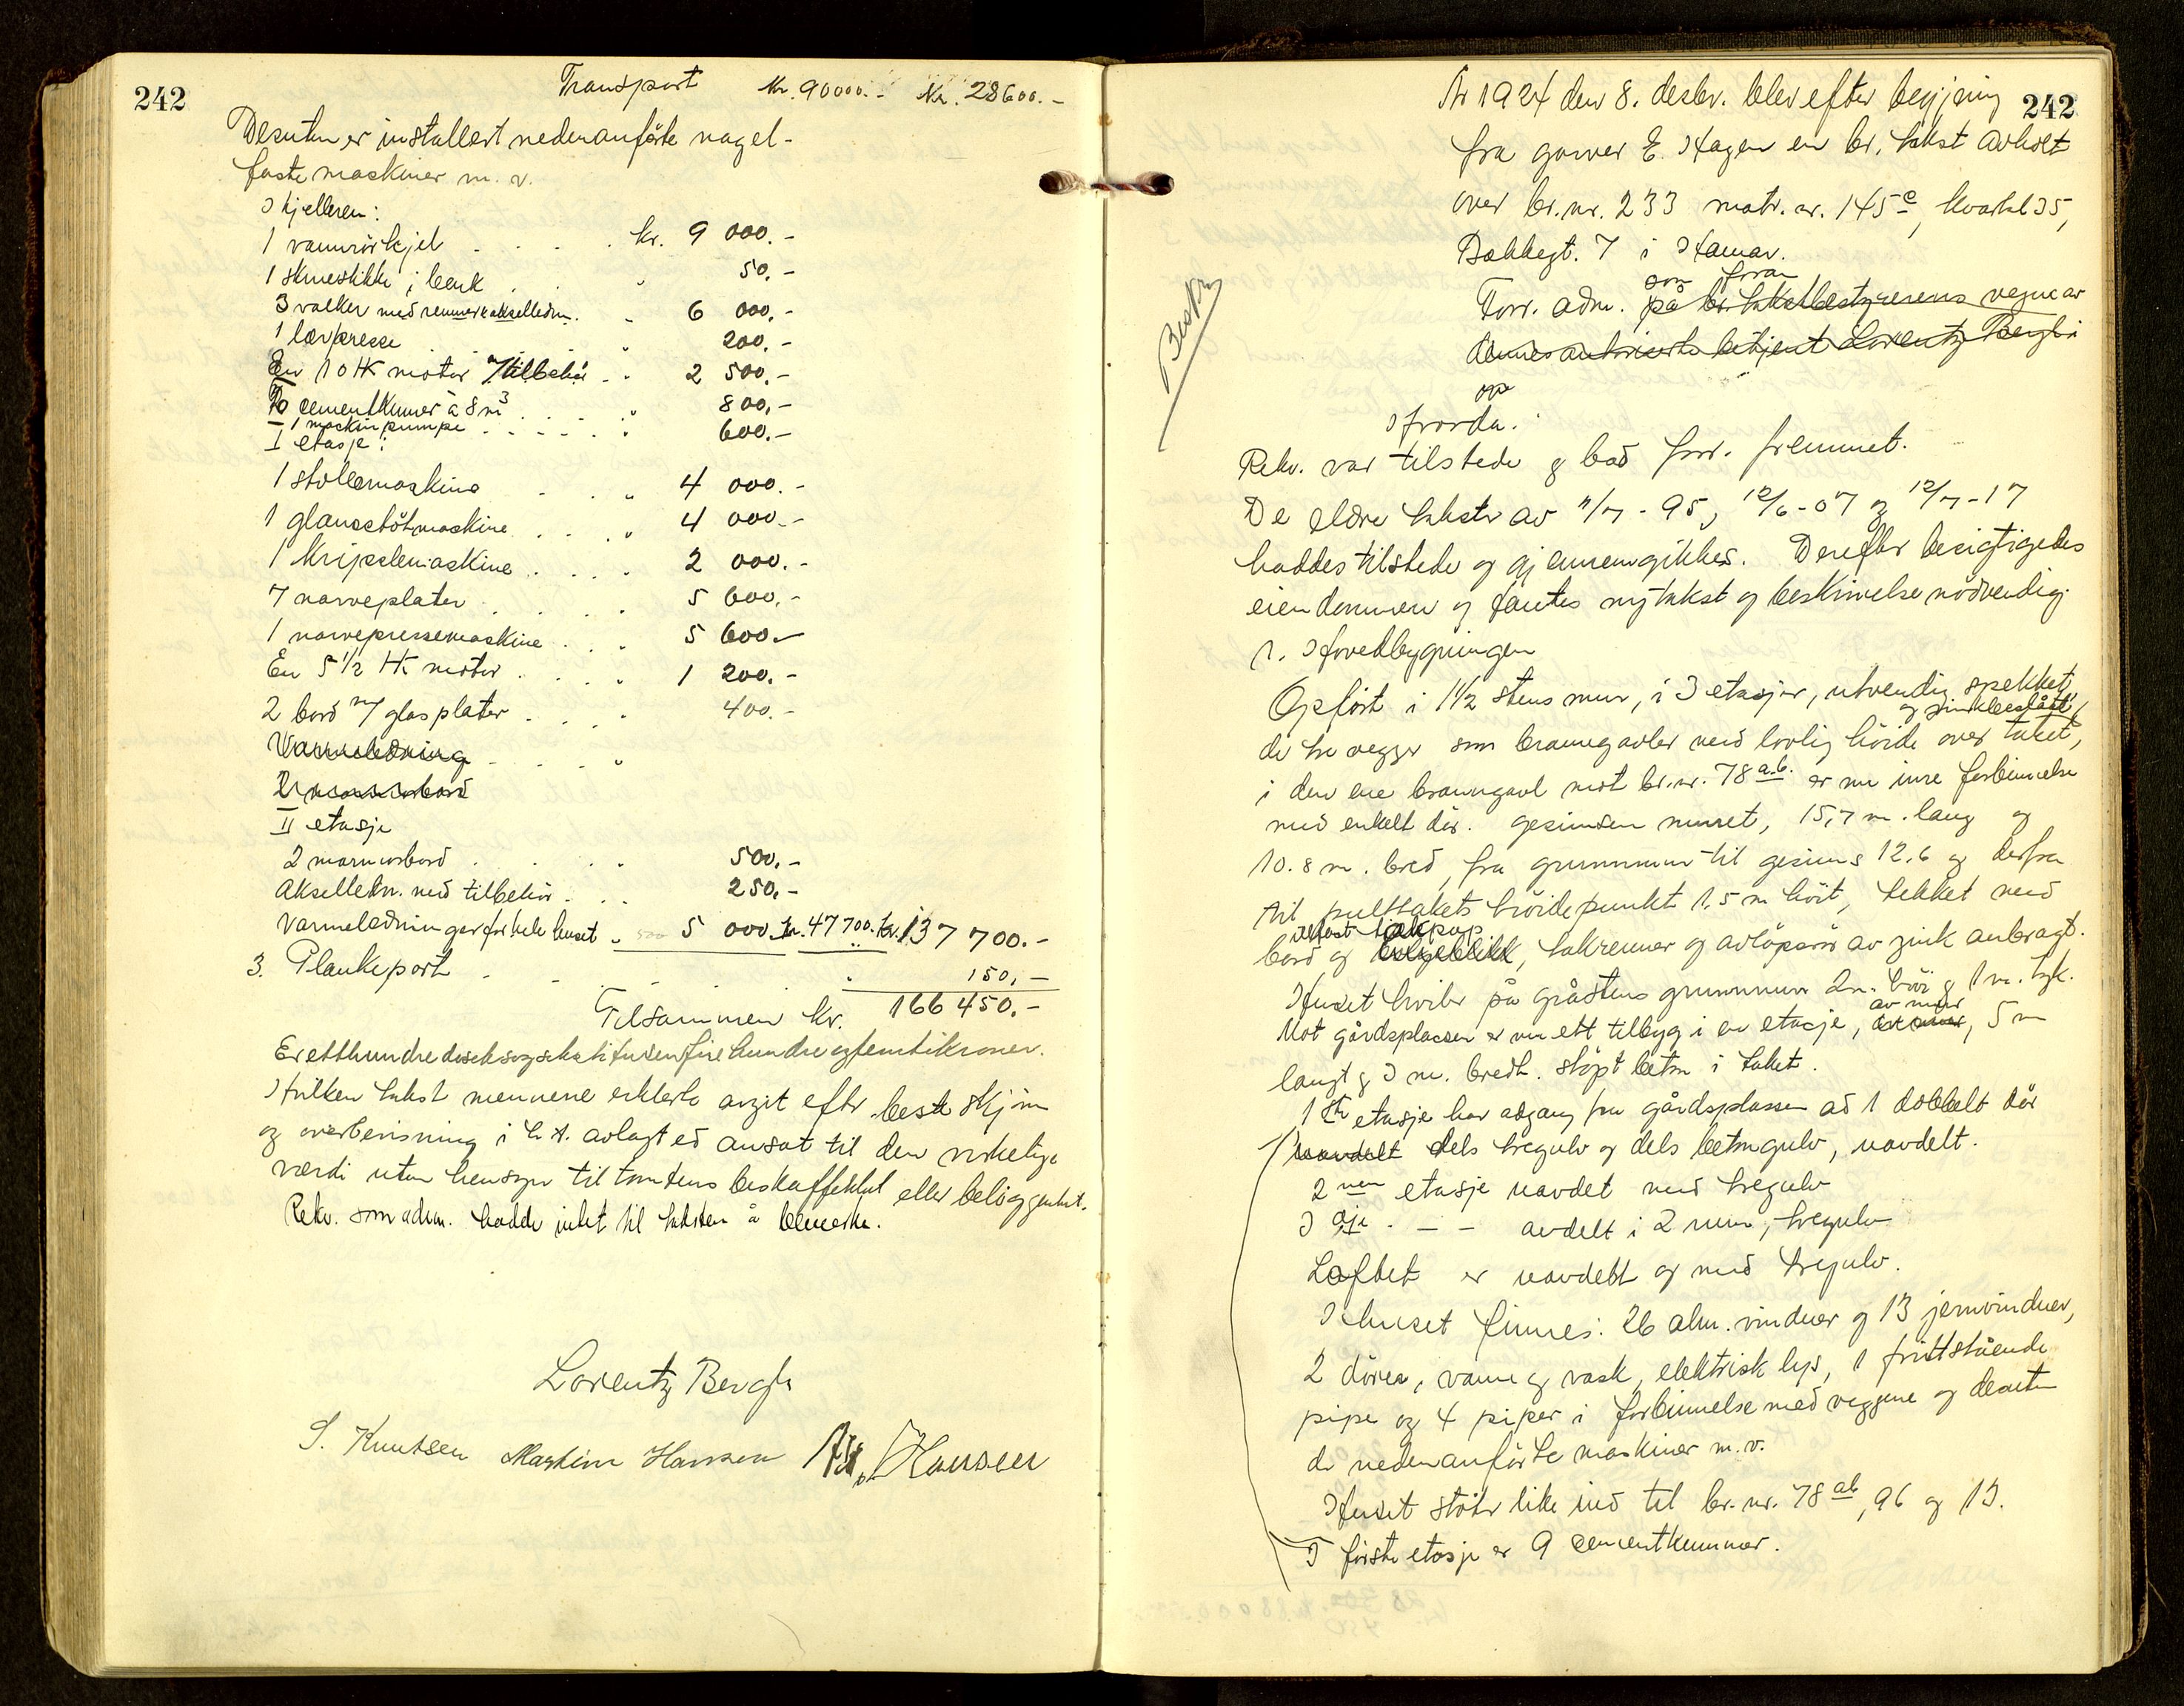 242
Transport Kr. 90000.- Kr. 28600.-
Desuten er installert nedenanförte nagel-
faste maskiner m. v.
I kjelleren:
1 vannrörkjel . . . . kr. 9 000.-
1 skruestikke i benk . . " 50.-
3 valker med remmer & akselledn. " 6 000.-
1 lærpresse . . . " 200.-
En 10 HK motor m/tilbehör . " 2 500.-
10 cementkummer à 8 m³ . . . " 800.-
1 maskinpumpe . . . . " 600.-
I etasje:
1 stollemaskine . . " 4 000.-
1 glansstötmaskine . . . " 4 000.-
1 krispelemaskine . . . . 2 000.-
7 narveplater . . . . 5 600.-
1 narvepressemaskine . . . 5 600.-
En 5 1/2 HK motor . . . " 1 200.-
2 bord m/ glasplater . . . . 400.-
Varmeledning . . . "
2 marmorbord
II etasje
2 marmorbord . . . . " 500.-
Akselledn. med tilbehör . . . 250.-
Varmeledninger for hele huset " 5 000.- kr. 47700.- kr. 137 700.-
3. Plankeport . . . . . " 150.-
Tilsammen kr. 166 450.-
Er etthundredeseksogsekstitusenfirehundreogfemtikroner.
Hvilken takst mennene erklærte avgit efter beste skjön
og overbevisning i h. t. avlagt ed ansat til den virkelige
værdi uten hensyn til tomtens beskaffenhet eller beliggenhet.
Rekv. som adm. hadde intet til taksten å bemerke.
Lorentz Bergh
S. Knutsen Martin Hansen Hansen
242
År 1924 den 8. desbr. blev efter begjæring
fra garver E. Hagen en br. takst avholdt
over br.nr. 233 matr. nr. 145 c, kvartal 35,
Bakkegt. 7 i Hamar.
som foran
Forr. adm. på br. takstbestyrerens vegne av
dennes autoriserte betjent Lorentz Bergh i
Beskr.
Rekv. var tilstede og bad forr. fremmet.
De eldre takster av 11/7 - 95, 12/6 - 07 og 12/7 - 17
haddes tilstede og gjennemgikkes. Derefter besigtigedes
eiendommen og fantes ny takst og beskrivelse nödvendig.
1. Hovedbygningen
Opfört i 1 1/2 stens mur, i 3 etasjer, utvendig spekket,
og sinkbeslått
de tre vegger som branngavler med lovlig höide over taket,
i den ene branngavl mot br.nr. 78 a.b. er nu indre forbinnelse
med enkelt dör. Gesimsen muret, 15,7 m. lang og
10.8 m. bred, fra grunnmur til gesims 12.6 og derfra
til pulttakets höidepunkt 1.5 m höit, tekket med
takpap
bord og bølgeblikk, takrenner og avlöpsrör av zink anbragt.
Huset hviler på gråstens grunnmur 2 m. höi & 1 m. tyk.
av mur
Mot gårdsplassen er nu ett tilbyg i en etasje, 5 m
langt & 3 m. bredt. stöpt beton i taket.
1ste etasje har adgang fra gårdsplassen ad 1 dobbelt dör
uavdelt dels tregulv og dels betongulv, uavdelt.
2nen etasje uavdelt med tregulv
3dje - — - avdelt i 2 rum, tregulv
Loftet er uavdelt og med tregulv.
I huset finnes: 26 alm. vinduer og 13 jernvinduer,
2 dörer, vann og vask, elektrisk lys, 1 frittstående
pipe og 4 piper i forbinnelse med veggene og desuten
de nedenanförte maskiner m.v.
Huset stöter like ind til br.nr. 78 ab, 96 og 13.
I förste etasje er 9 cementkummer.